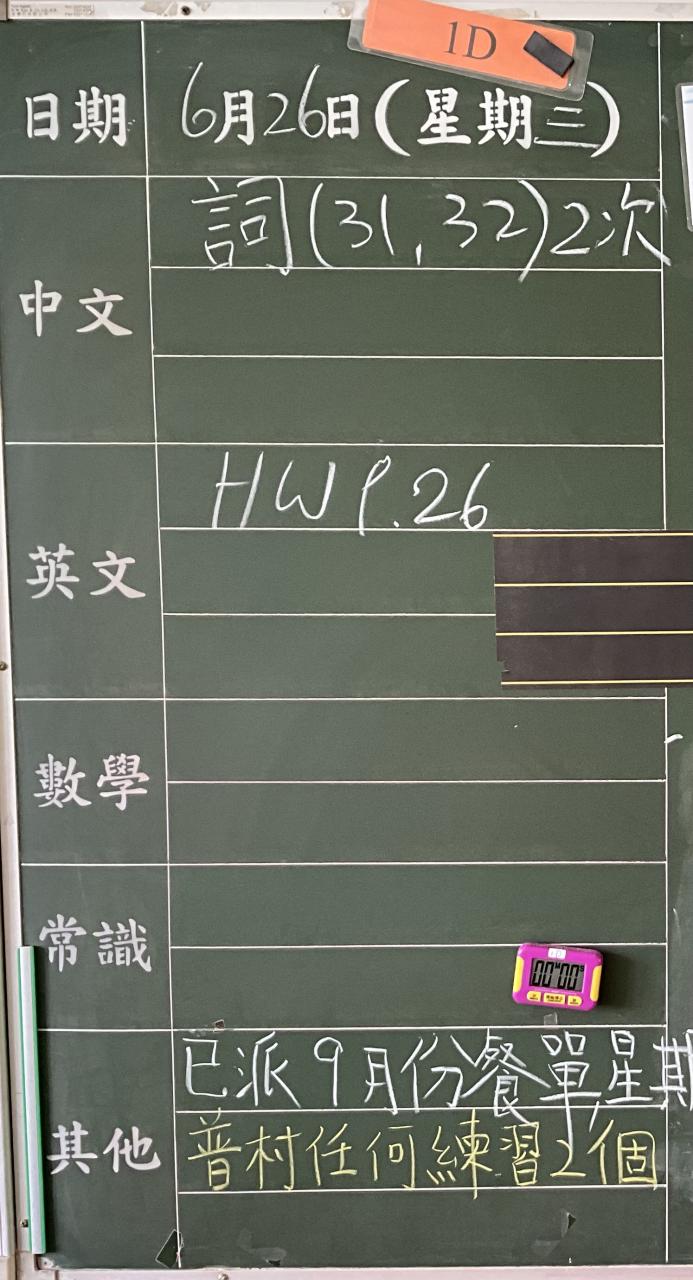 1D
日期 6月26日(星期三)
中文 詞(31,32)2次
英文 HW P.26
數學
常識
00 00
其他 已派9月份餐單,星期
普村任何練習2個